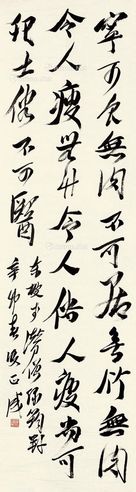 寧可食無肉不可居無竹無肉
令人瘦無竹令人俗人瘦尚可
肥士俗不可醫
東坡於潛僧綠筠軒
辛卯春正成